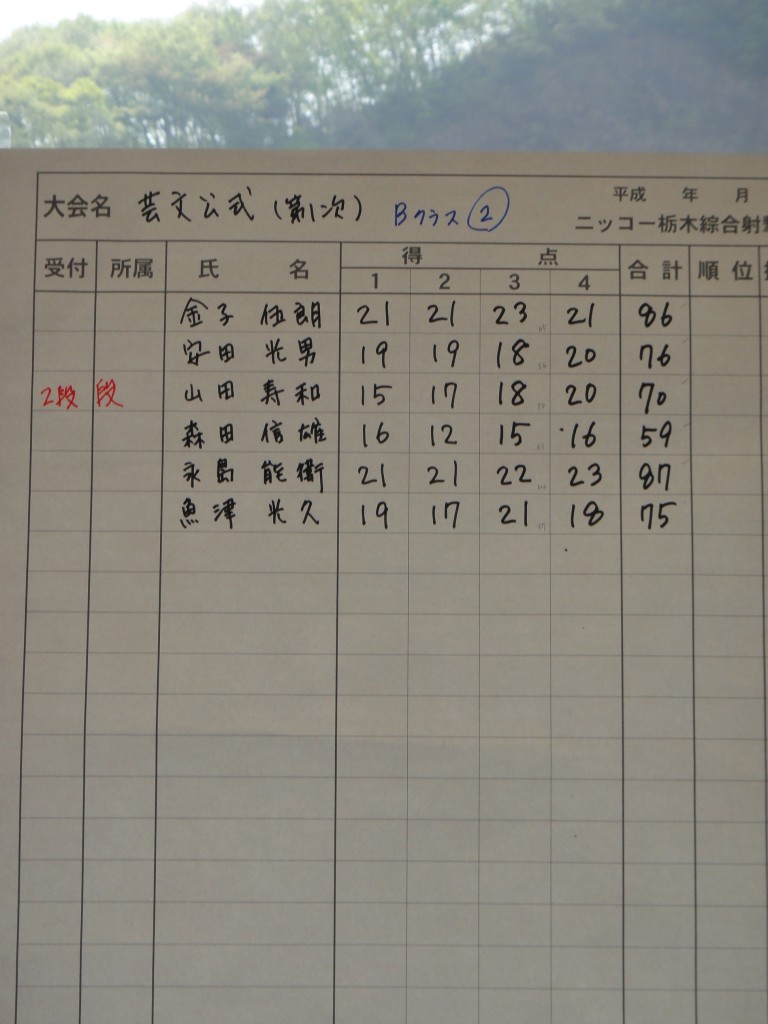 大会名 芸文公式(第1次) Bクラス ② 平成 年 月
ニッコー栃木綜合射撃
受付 所属 氏 名 得 点 合計 順位
1 2 3 4
金子 伍朗 21 21 23 21 86
安田 光男 19 19 18 20 76
2段 段 山田 寿和 15 17 18 20 70
森田 信雄 16 12 15 16 59
永島 能衛 21 21 22 23 87
魚津 光久 19 17 21 18 75